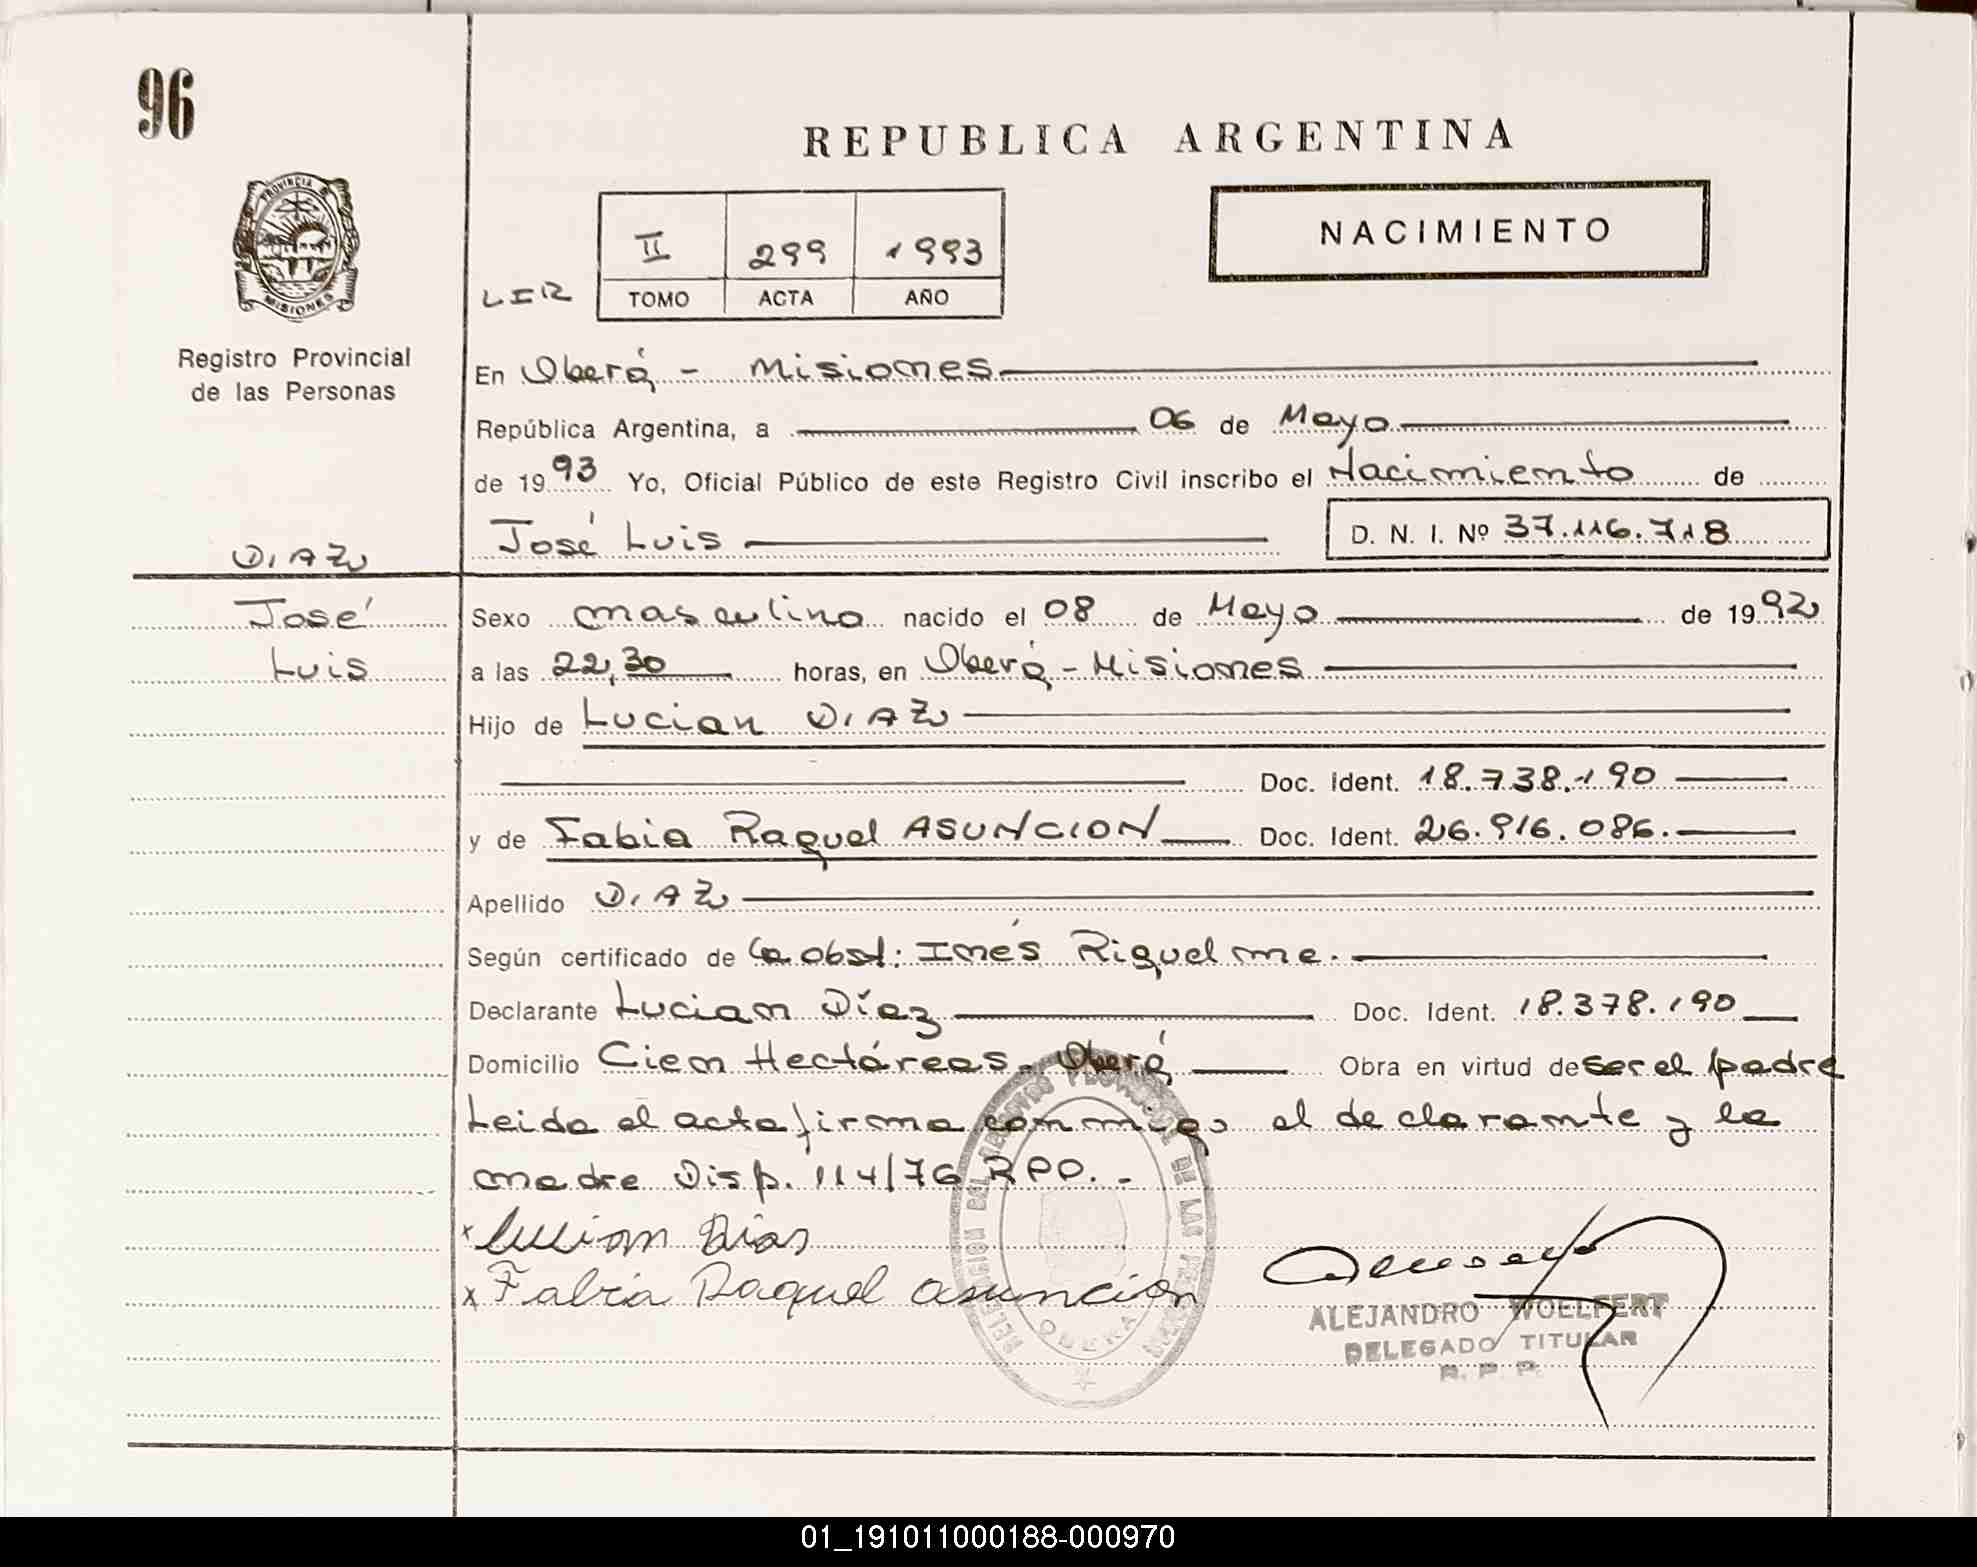 96
REPUBLICA ARGENTINA
PROVINCIA DE
MISIONES
NACIMIENTO
II 299 1993
TOMO ACTA AÑO
Registro Provincial
de las Personas
En Oberá - Misiones
República Argentina, a 06 de Mayo
de 1993 Yo, Oficial Público de este Registro Civil inscribo el Nacimiento de
José Luis D. N. I. Nº 37.116.718
DIAZ
José
Luis
Sexo masculino nacido el 08 de Mayo de 1992
a las 22,30 horas, en Oberá - Misiones
Hijo de Lucian DIAZ
Doc. Ident. 18.738.190
y de Fabia Raquel ASUNCION Doc. Ident. 26.916.086.
Apellido DIAZ
Según certificado de la obst: Inés Riquelme.
Declarante Lucian Díaz Doc. Ident. 18.378.190
Domicilio Cien Hectáreas - Oberá Obra en virtud de ser el padre
Leida el acta firma conmigo el declarante y la
madre Disp. 114/76 RPP. -
x Lucian Dias
x Fabia Raquel asuncion
DELEGACION DEL REGISTRO PROVINCIAL DE LAS PERSONAS
OBERA
ALEJANDRO WOELFERT
DELEGADO TITULAR
R. P. P.
01_191011000188-000970